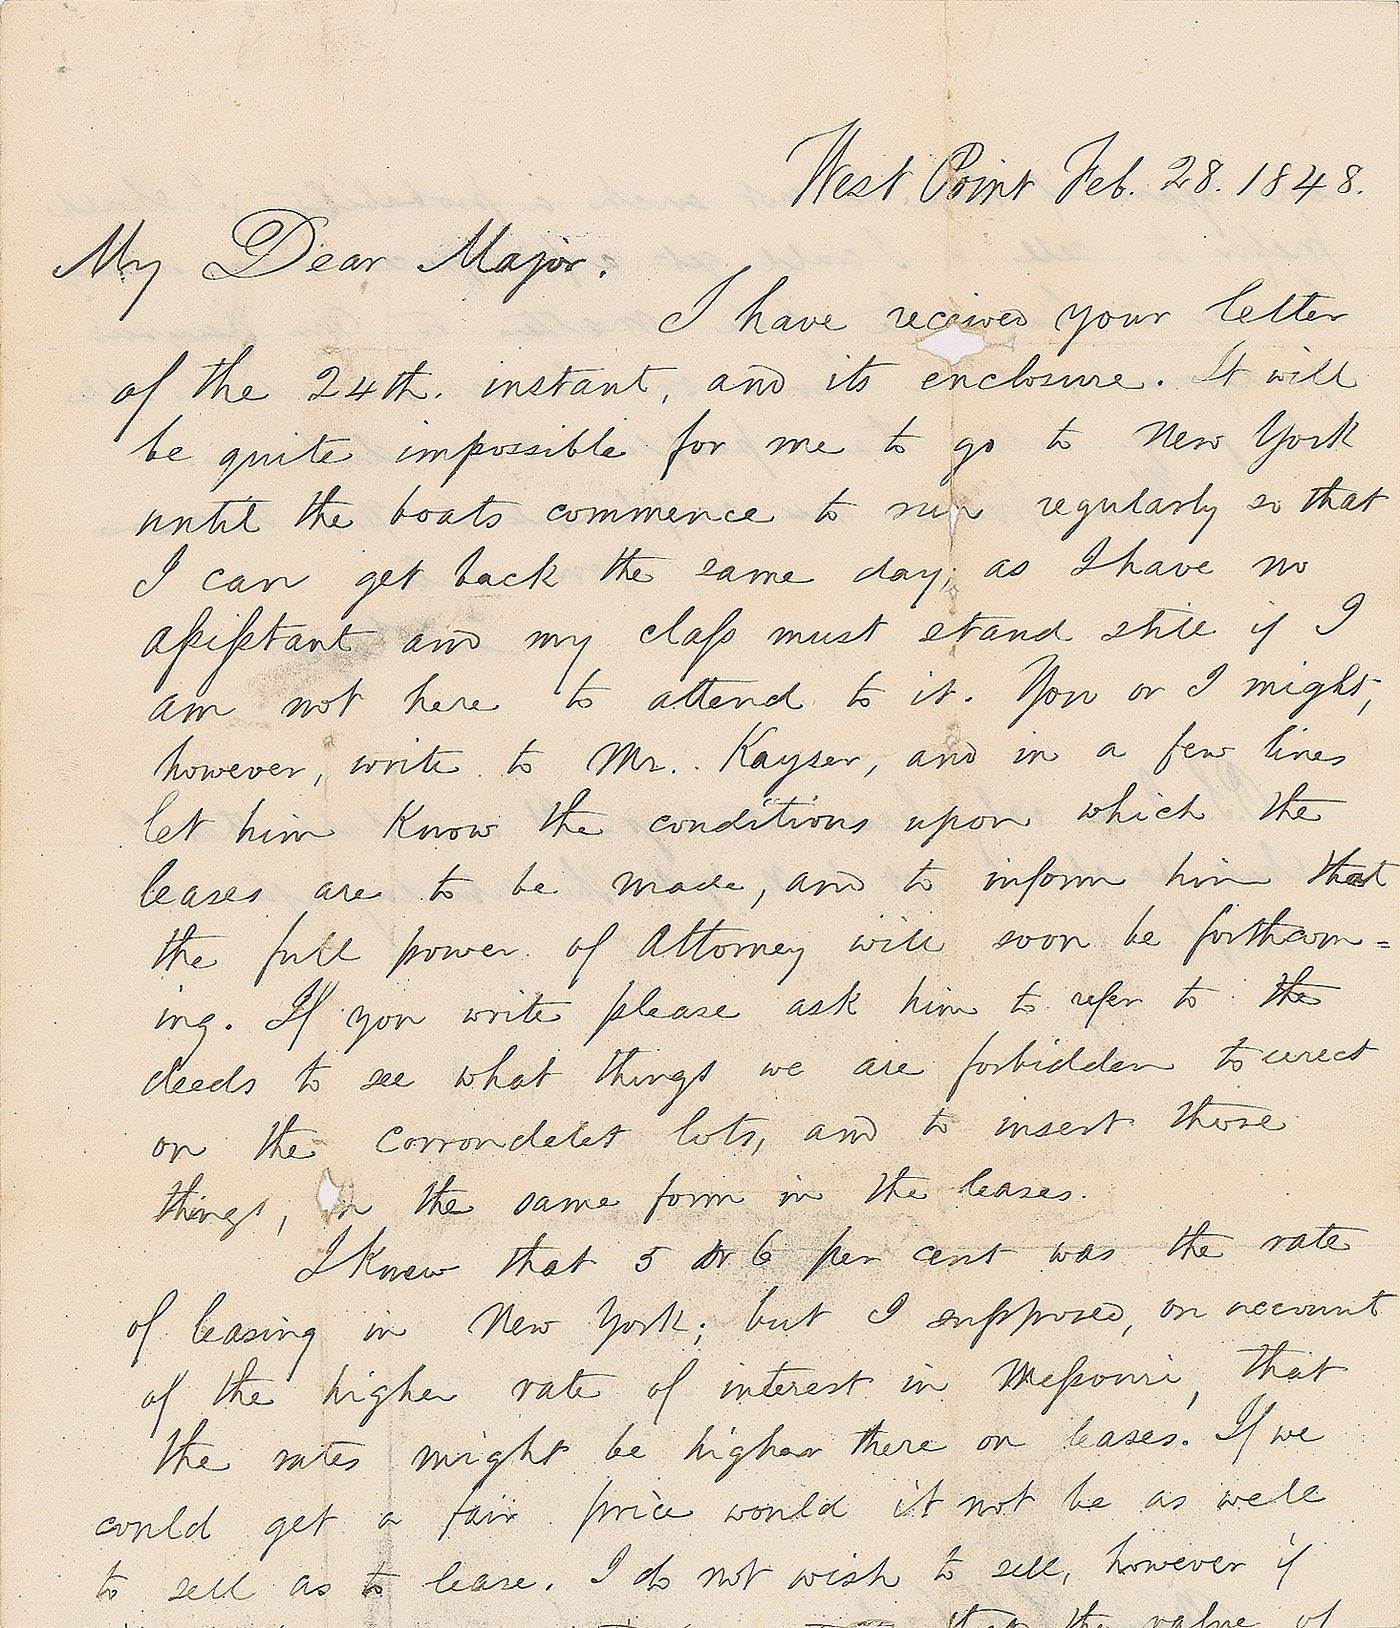 West Point Feb. 28. 1848.
My Dear Major.
I have received your letter
of the 24th. instant, and its enclosure. It will
be quite impossible for me to go to New York
until the boats commence to run regularly so that
I can get back the same day; as I have no
assistant and my class must stand still if I
am not here to attend to it. You or I might,
however, write to Mr. Kayser, and in a few lines
let him know the conditions upon which the
leases are to be made, and to inform him that
the full power of Attorney will soon be forthcom=
ing. If you write please ask him to refer to the
deeds to see what things we are forbidden to erect
on the Corrondelet lots, and to insert those
things, in the same form in the leases.
I Knew that 5 or 6 per cent was the rate
of leasing in New York; but I supposed, on account
of the higher rate of interest in Missouri, that
the rates might be higher there on leases. If we
could get a fair price would it not be as well
to sell as to lease. I do not wish to sell, however if
the value of